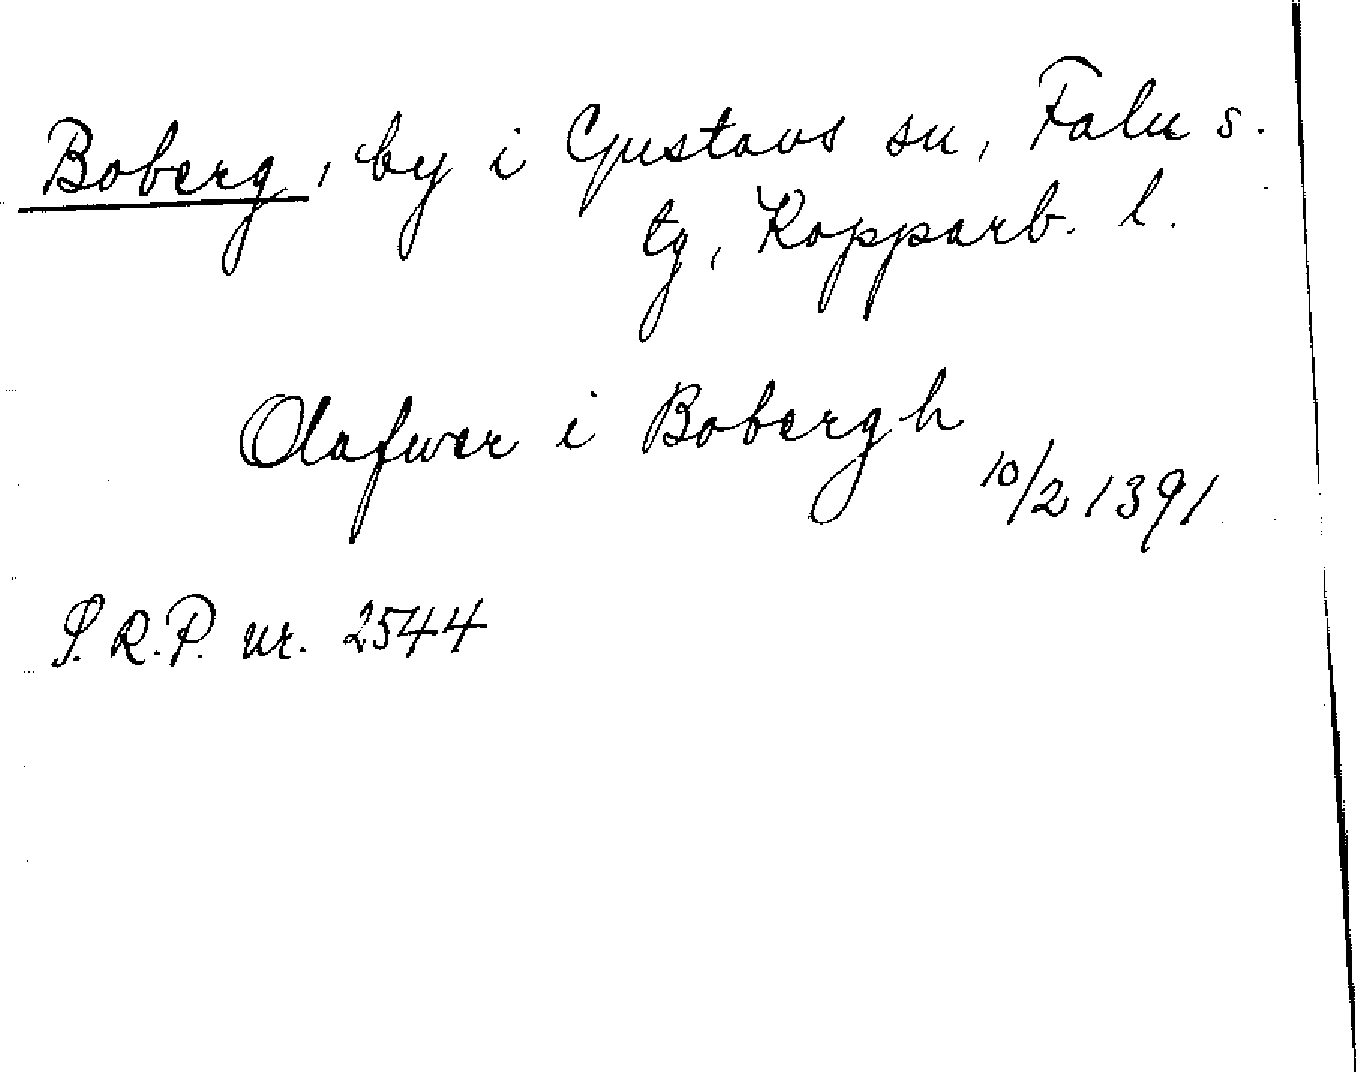 Boberg, by i Gustavs sn, Falu s.
tg, Kopparb. l.
Olafwer i Bobergh
10/2 1391
S.R.P. nr. 2544